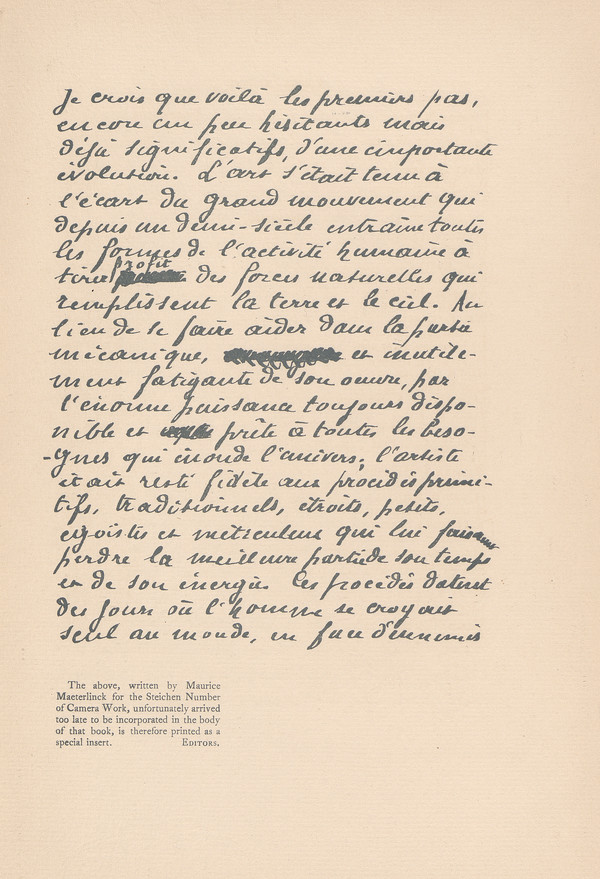 Je crois que voilà les premiers pas,
encore un peu hésitants mais
déjà significatifs, d'une importante
évolution. L'art s'était tenu à
l'écart du grand mouvement qui
depuis un demi-siècle entraine toutes
les formes de l'activité humaine à
tirer profit des forces naturelles qui
remplissent la terre et le ciel. Au
lieu de se faire aider dans la partie
mécanique, et inutile-
ment fatigante de son oeuvre, par
l'énorme puissance toujours dispo-
nible et prête à toutes les beso-
-gnes qui inonde l'univers, l'artiste
était resté fidèle aux procédés primi-
tifs, traditionnels, étroits, petits,
egoïstes et méticuleux qui lui faisaient
perdre la meilleure partie de son temps
et de son énergie. Ces procédés datent
des jours où l'homme se croyait
seul au monde, en face d'ennemis
The above, written by Maurice
Maeterlinck for the Steichen Number
of Camera Work, unfortunately arrived
too late to be incorporated in the body
of that book, is therefore printed as a
special insert. EDITORS.